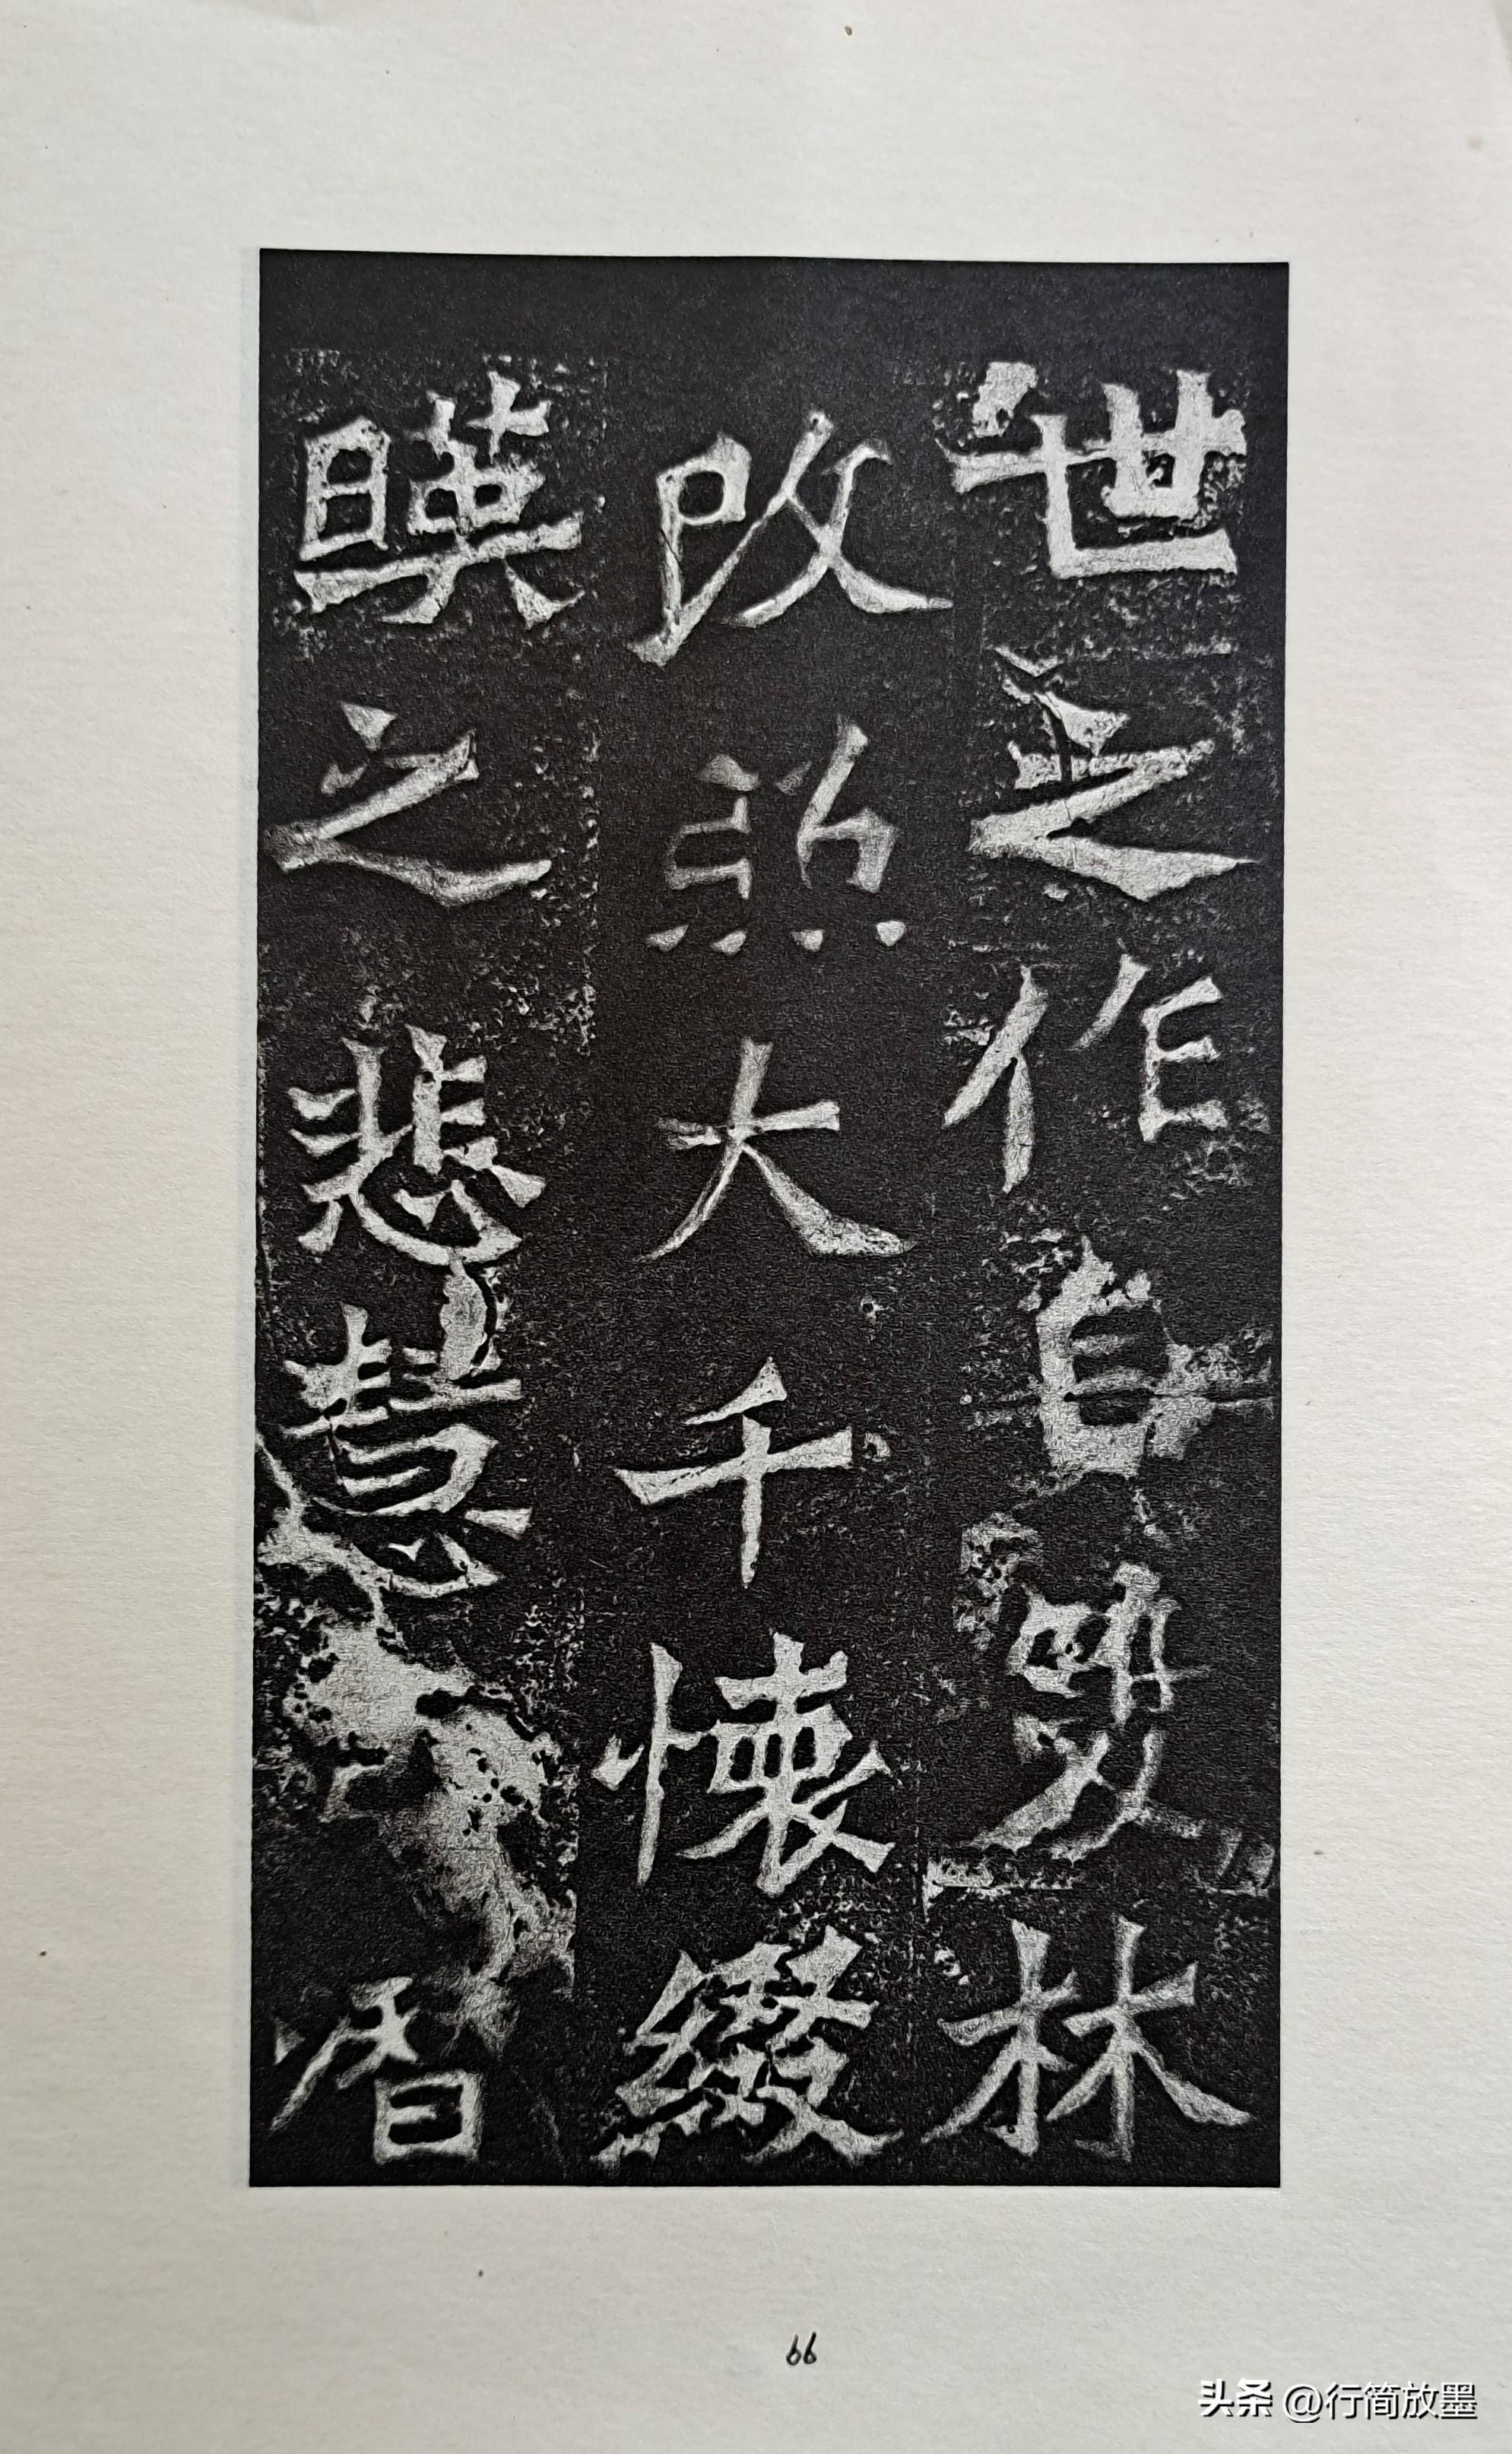 世之作自雙林
改照大千懷綴
暎之悲慧
66
头条 @行简放墨